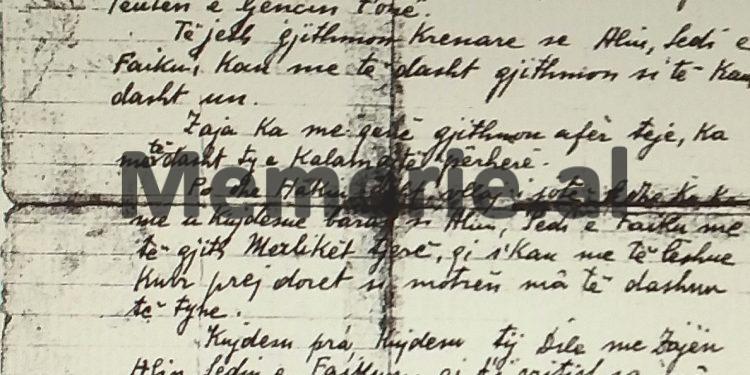 Teutën e Gencin t'onë.
Të jesh gjithmon Krenare se Aliu, Sedi e
Faiku, Kan me të dasht gjithmon si të Kam
dasht un.
Zaja Ka me qenë gjithmon afër teje, Ka
me të dasht ty e Kalama të përherë.
Po dhe
Memorie.al
me u Kujdesue baras si Aliu, Sedi e Faiku me
të gjith Merlikët tjerë, qi s'Kan me të leshue
Kurr prej doret si motrën mâ të dashun
të tyne.
Kujdesu pra, Kujdesu tij Dile me Zajën
Alin Sedin e Faikun, qi